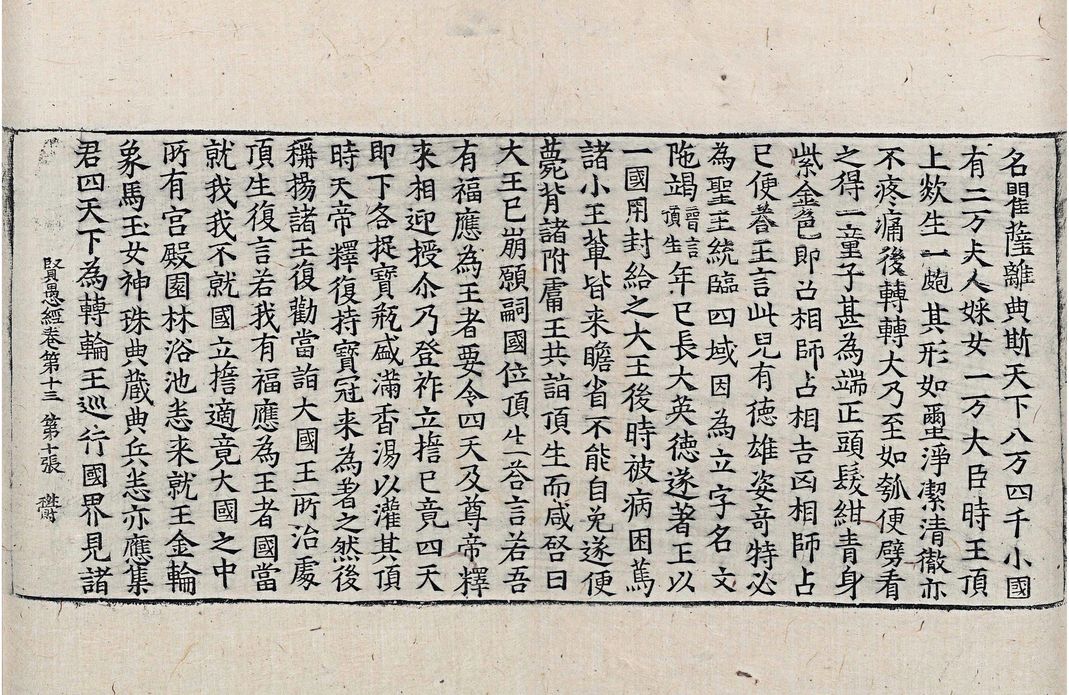 名瞿薩離典斯天下八万四千小國
有二万夫人婇女一万大臣時王頂
上欻生一皰其形如𤾉淨潔清徹亦
不疼痛後轉轉大乃至如瓠便劈看
之得一童子甚為端正頭髮紺青身
紫金色即召相師占相吉凶相師占
已便荅王言此兒有德雄姿奇特必
為聖王統臨四域因為立字名文
陁竭晉言頂生年已長大英德遂著王以
一國用封給之大王後時被病困篤
諸小王輩皆来瞻省不能自免遂便
薨背諸附庸王共詣頂生而咸啓曰
大王已崩願嗣國位頂生荅言若吾
有福應為王者要令四天及尊帝釋
来相迎授尒乃登祚立誓已竟四天
即下各捉寶瓶盛滿香湯以灌其頂
時天帝釋復持寶冠来為著之然後
稱揚諸王復勸當詣大國王所治處
頂生復言若我有福應為王者國當
就我我不就國立誓適竟大國之中
所有宮殿園林浴池悉来就王金輪
象馬玉女神珠典藏典兵悉亦應集
君四天下為轉輪王巡行國界見諸
賢愚經卷第十三 第十張 欝